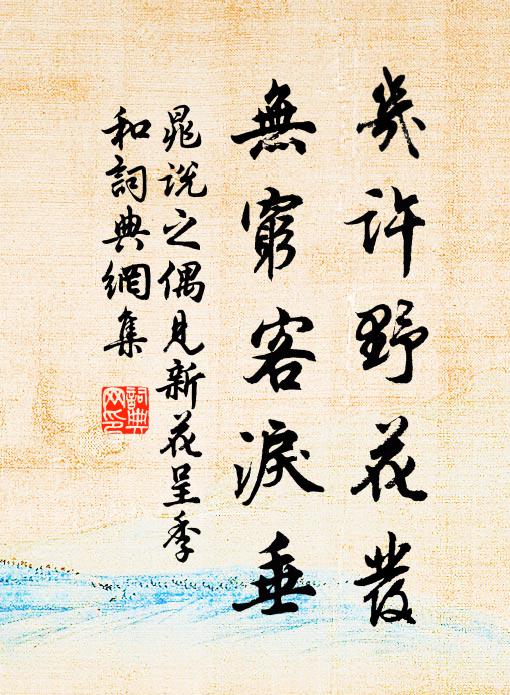 幾許野花發
無窮客淚垂
晁説之偶見新花呈季
和詞典網集
詞典
網印